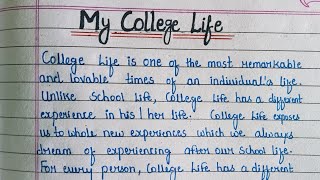 My College Life
College Life is one of the most remarkable
and lovable times of an individual's life.
Unlike School Life, College Life has a different
experience in his / her life. College Life exposes
us to whole new experiences which we always
dream of experiencing after our school life.
For every person, College Life has a different